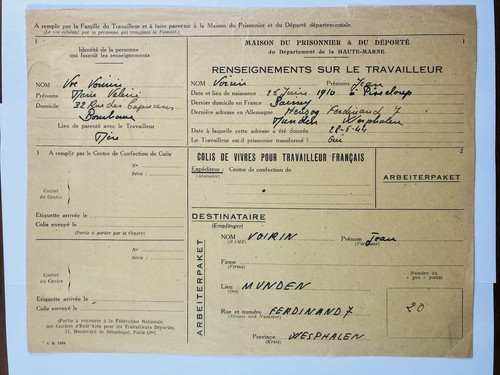 A remplir par la Famille du Travailleur et à faire parvenir à la Maison du Prisonnier et du Déporté départementale.
1
Identité de la personne
qui fournit les renseignements
NOM Vve Voirin
Prénoms Marie
Domicile 32 Rue des Capucins
Lien de parenté avec le Travailleur
Mère
MAISON DU PRISONNIER & DU DÉPORTÉ
du Département de la HAUTE-MARNE
RENSEIGNEMENTS SUR LE TRAVAILLEUR
NOM Voirin Prénoms Jean
Date et lieu de naissance : 25 Juin 1910 à Pisseloup
Dernier domicile en France :
Dernière adresse en Allemagne : Herzog Ferdinand 7
Munden Wesphalen
Date à laquelle cette adresse a été donnée 28-5-44
Le travailleur est-il prisonnier transformé ? Oui
3 A remplir par le Centre de Confection de Colis
Nº
Série :
Cachet
du Centre
Etiquette arrivée le
Colis envoyé le
(Partie à garder par le Centre)
Nº
Série :
Cachet
du Centre
Etiquette arrivée le
Colis envoyé le
(Partie à renvoyer à la Fédération Nationale
des Centres d'Entr'Aide pour les Travailleurs Déportés,
11, Boulevard de Sébastopol, Paris (1er)
COLIS DE VIVRES POUR TRAVAILLEUR FRANÇAIS
Expéditeur : Centre de confection de
(Absender)
ARBEITERPAKET
ARBEITERPAKET
DESTINATAIRE
(Empfänger)
NOM VOIRIN Prénom Jean
(NAME) (Vorname)
Firme
(Firma)
Lieu MUNDEN
(Ort)
Rue et numéro FERDINAND 7
(Strasse und Nummer)
Province WESPHALEN
(Kreis)
Numéro du
« gau » postal
20